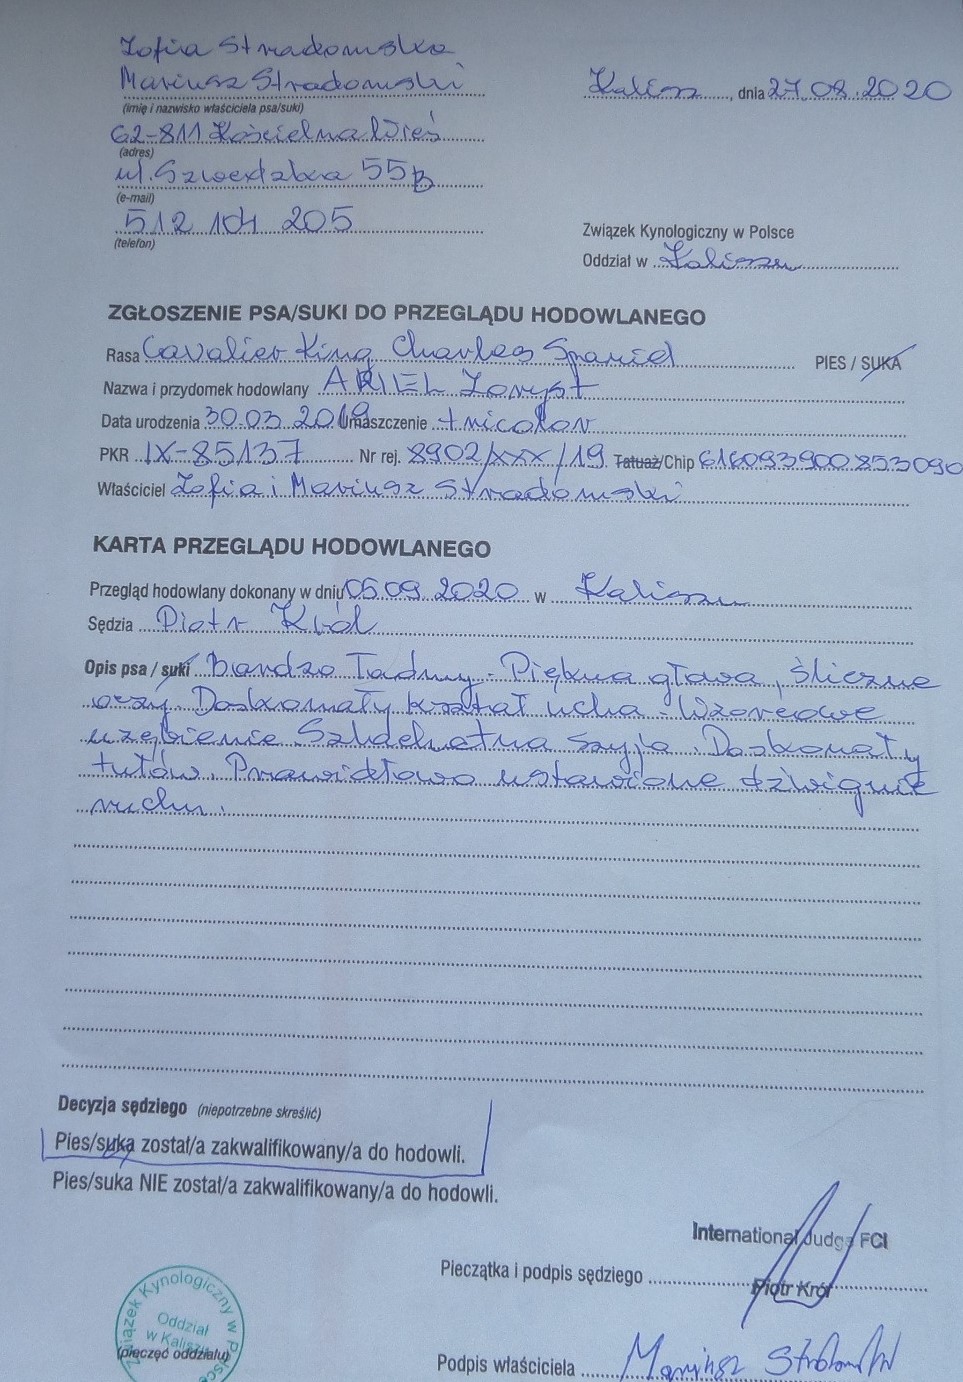 Zofia Stradomska
Mariusz Stradomski
(imię i nazwisko właściciela psa/suki)
Kalisz, dnia 27.08.2020
62-811 Kościelna Wieś
(adres)
ul. Szwedzka 55B
(e-mail)
512 104 205
(telefon)
Związek Kynologiczny w Polsce
Oddział w Kaliszu
ZGŁOSZENIE PSA/SUKI DO PRZEGLĄDU HODOWLANEGO
Rasa Cavalier King Charles Spaniel PIES / SUKA
Nazwa i przydomek hodowlany ARIEL Zoryst
Data urodzenia 30.03.2019 Umaszczenie tricolor
PKR IX-85137 Nr rej. 8902/XXX/19 Tatuaż/Chip 616093900853090
Właściciel Zofia i Mariusz Stradomski
KARTA PRZEGLĄDU HODOWLANEGO
Przegląd hodowlany dokonany w dniu 05.09.2020 w Kaliszu
Sędzia Piotr Król
Opis psa / suki Bardzo ładny. Piękna głowa, śliczne
oczy. Doskonały kształt ucha. Wzorcowe
uzębienie. Szlachetna szyja. Doskonały
tułów. Prawidłowo ustawione dźwignie
ruchu.
Decyzja sędziego (niepotrzebne skreślić)
Pies/suka został/a zakwalifikowany/a do hodowli.
Pies/suka NIE został/a zakwalifikowany/a do hodowli.
International Judge FCI
Pieczątka i podpis sędziego Piotr Król
Związek Kynologiczny w Polsce
Oddział
w Kaliszu
(pieczęć oddziału)
Podpis właściciela Mariusz Stradomski